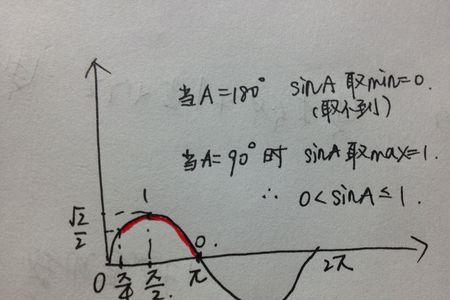 当A=180° sinA取min=0.
(取不到)
当A=90°时 sinA取max=1.
∴ 0<sinA≤1.
1
√2/2
0.
0 π/4 π/2. π 2π